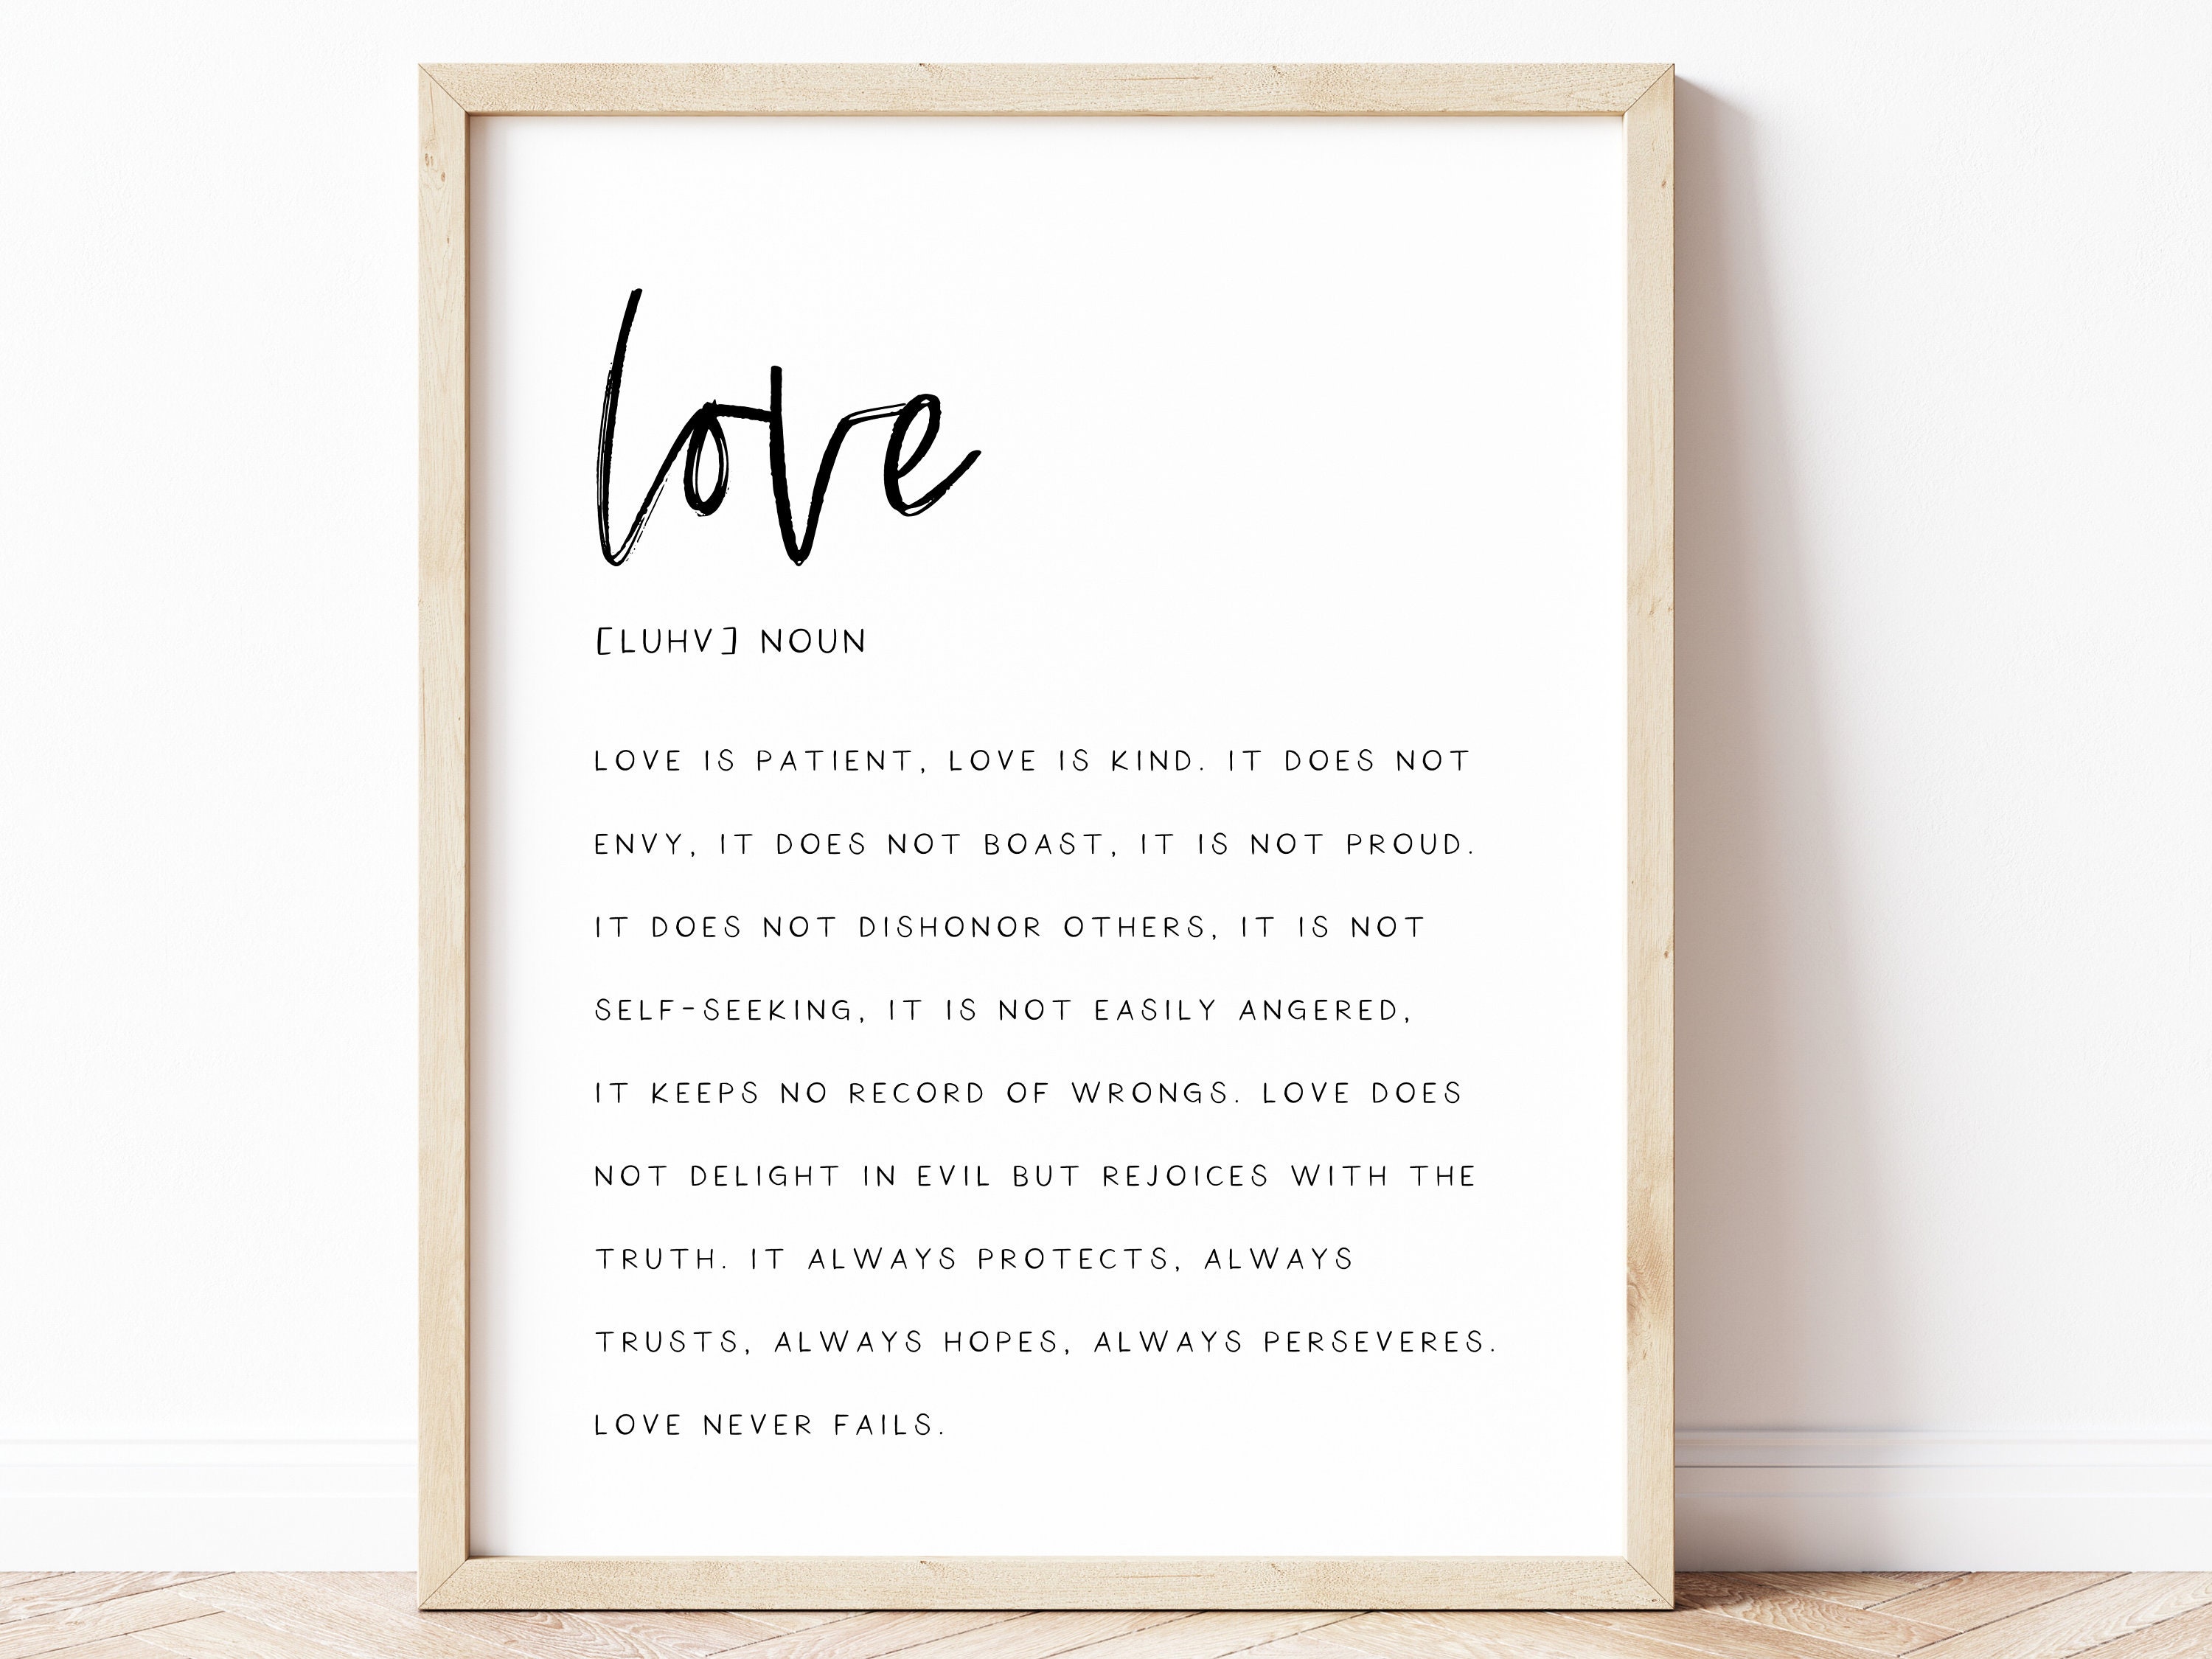 love
[LUHV] NOUN
LOVE IS PATIENT, LOVE IS KIND. IT DOES NOT
ENVY, IT DOES NOT BOAST, IT IS NOT PROUD.
IT DOES NOT DISHONOR OTHERS, IT IS NOT
SELF-SEEKING, IT IS NOT EASILY ANGERED,
IT KEEPS NO RECORD OF WRONGS. LOVE DOES
NOT DELIGHT IN EVIL BUT REJOICES WITH THE
TRUTH. IT ALWAYS PROTECTS, ALWAYS
TRUSTS, ALWAYS HOPES, ALWAYS PERSEVERES.
LOVE NEVER FAILS.